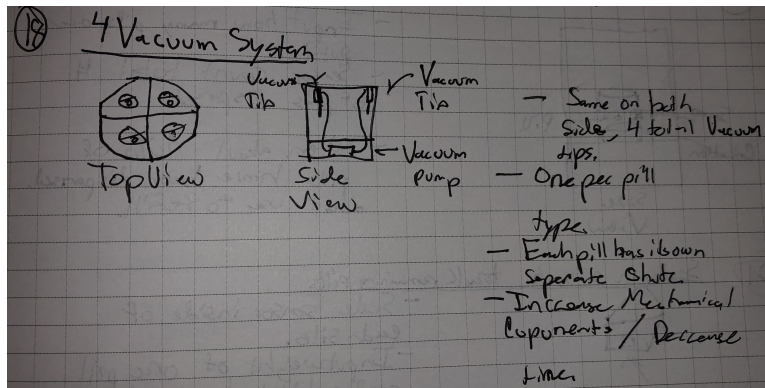 18
4 Vacuum System
Vacuum
Tip
Vacuum
Tip
Vacuum
Pump
Top View
Side
View
- Same on both
Side, 4 total Vacuum
tips.
- One per pill
type.
- Each pill has its own
Seperate Shute
- Increase Mechanical
Coponents / Decrease
time